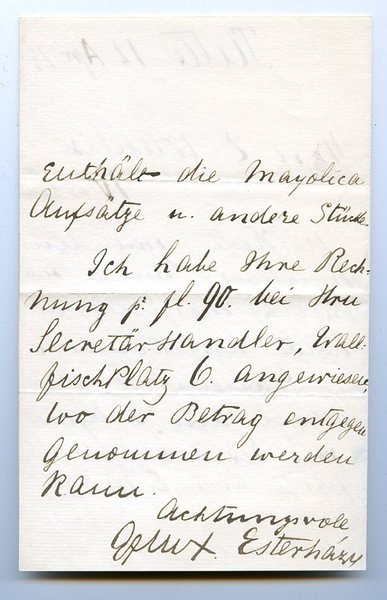 Enthält die Mayolica
Aufsätze u. andere Stücke.
Ich habe Ihre Rech-
nung pr fl. 90. bei Hrn
Secretär Handler, Wall-
fischPlatz 6. angewiesen,
wo der Betrag entgegen
genommen werden
kann.
Achtungsvoll
Esterházy